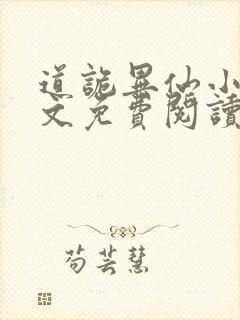 道詭異仙小
文免費閱讀
苟芸慧